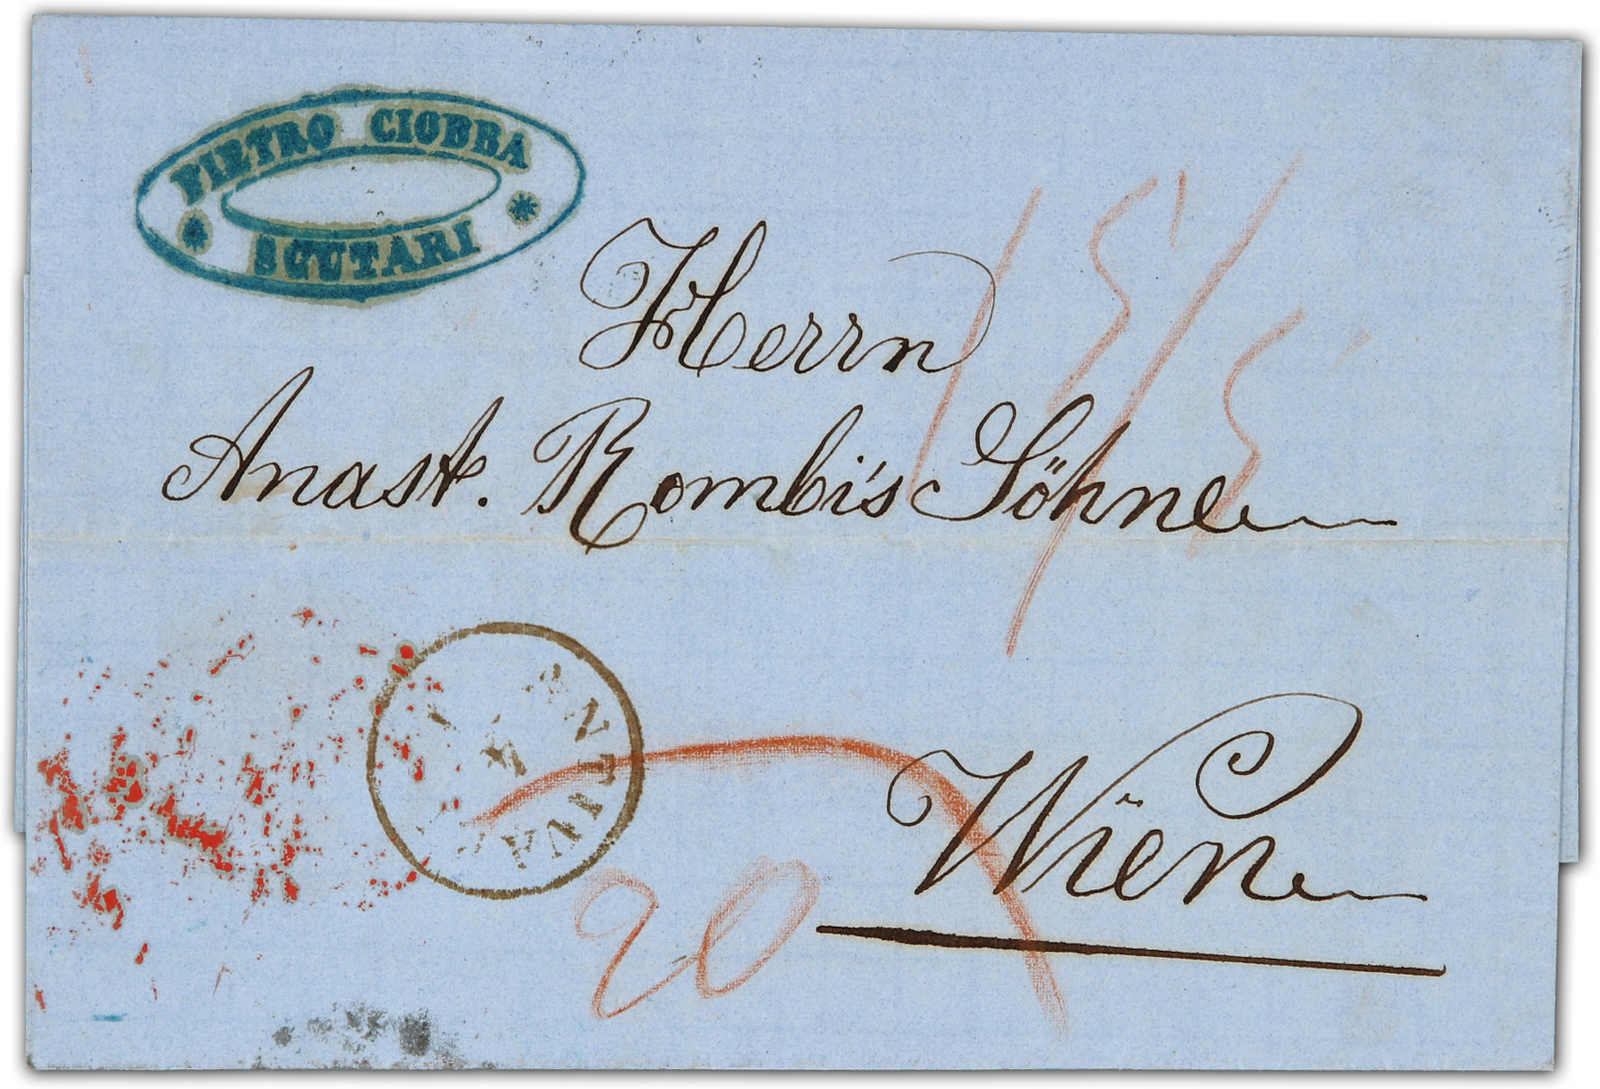 PIETRO CIOBBA
SCUTARI
15/5
Herrn
Anast. Rombi's Söhne
20
Wien